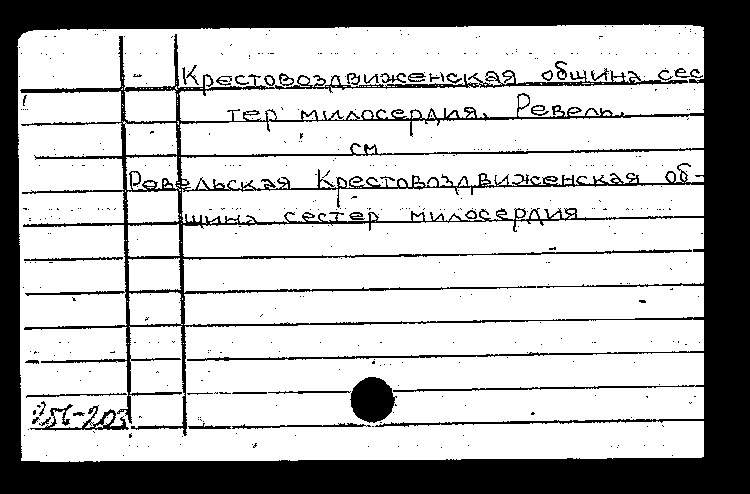 Крестовоздвиженская община сес
тер милосердия. Ревель.
см
Ревельская Крестовоздвиженская об-
щина сестер милосердия
256-203